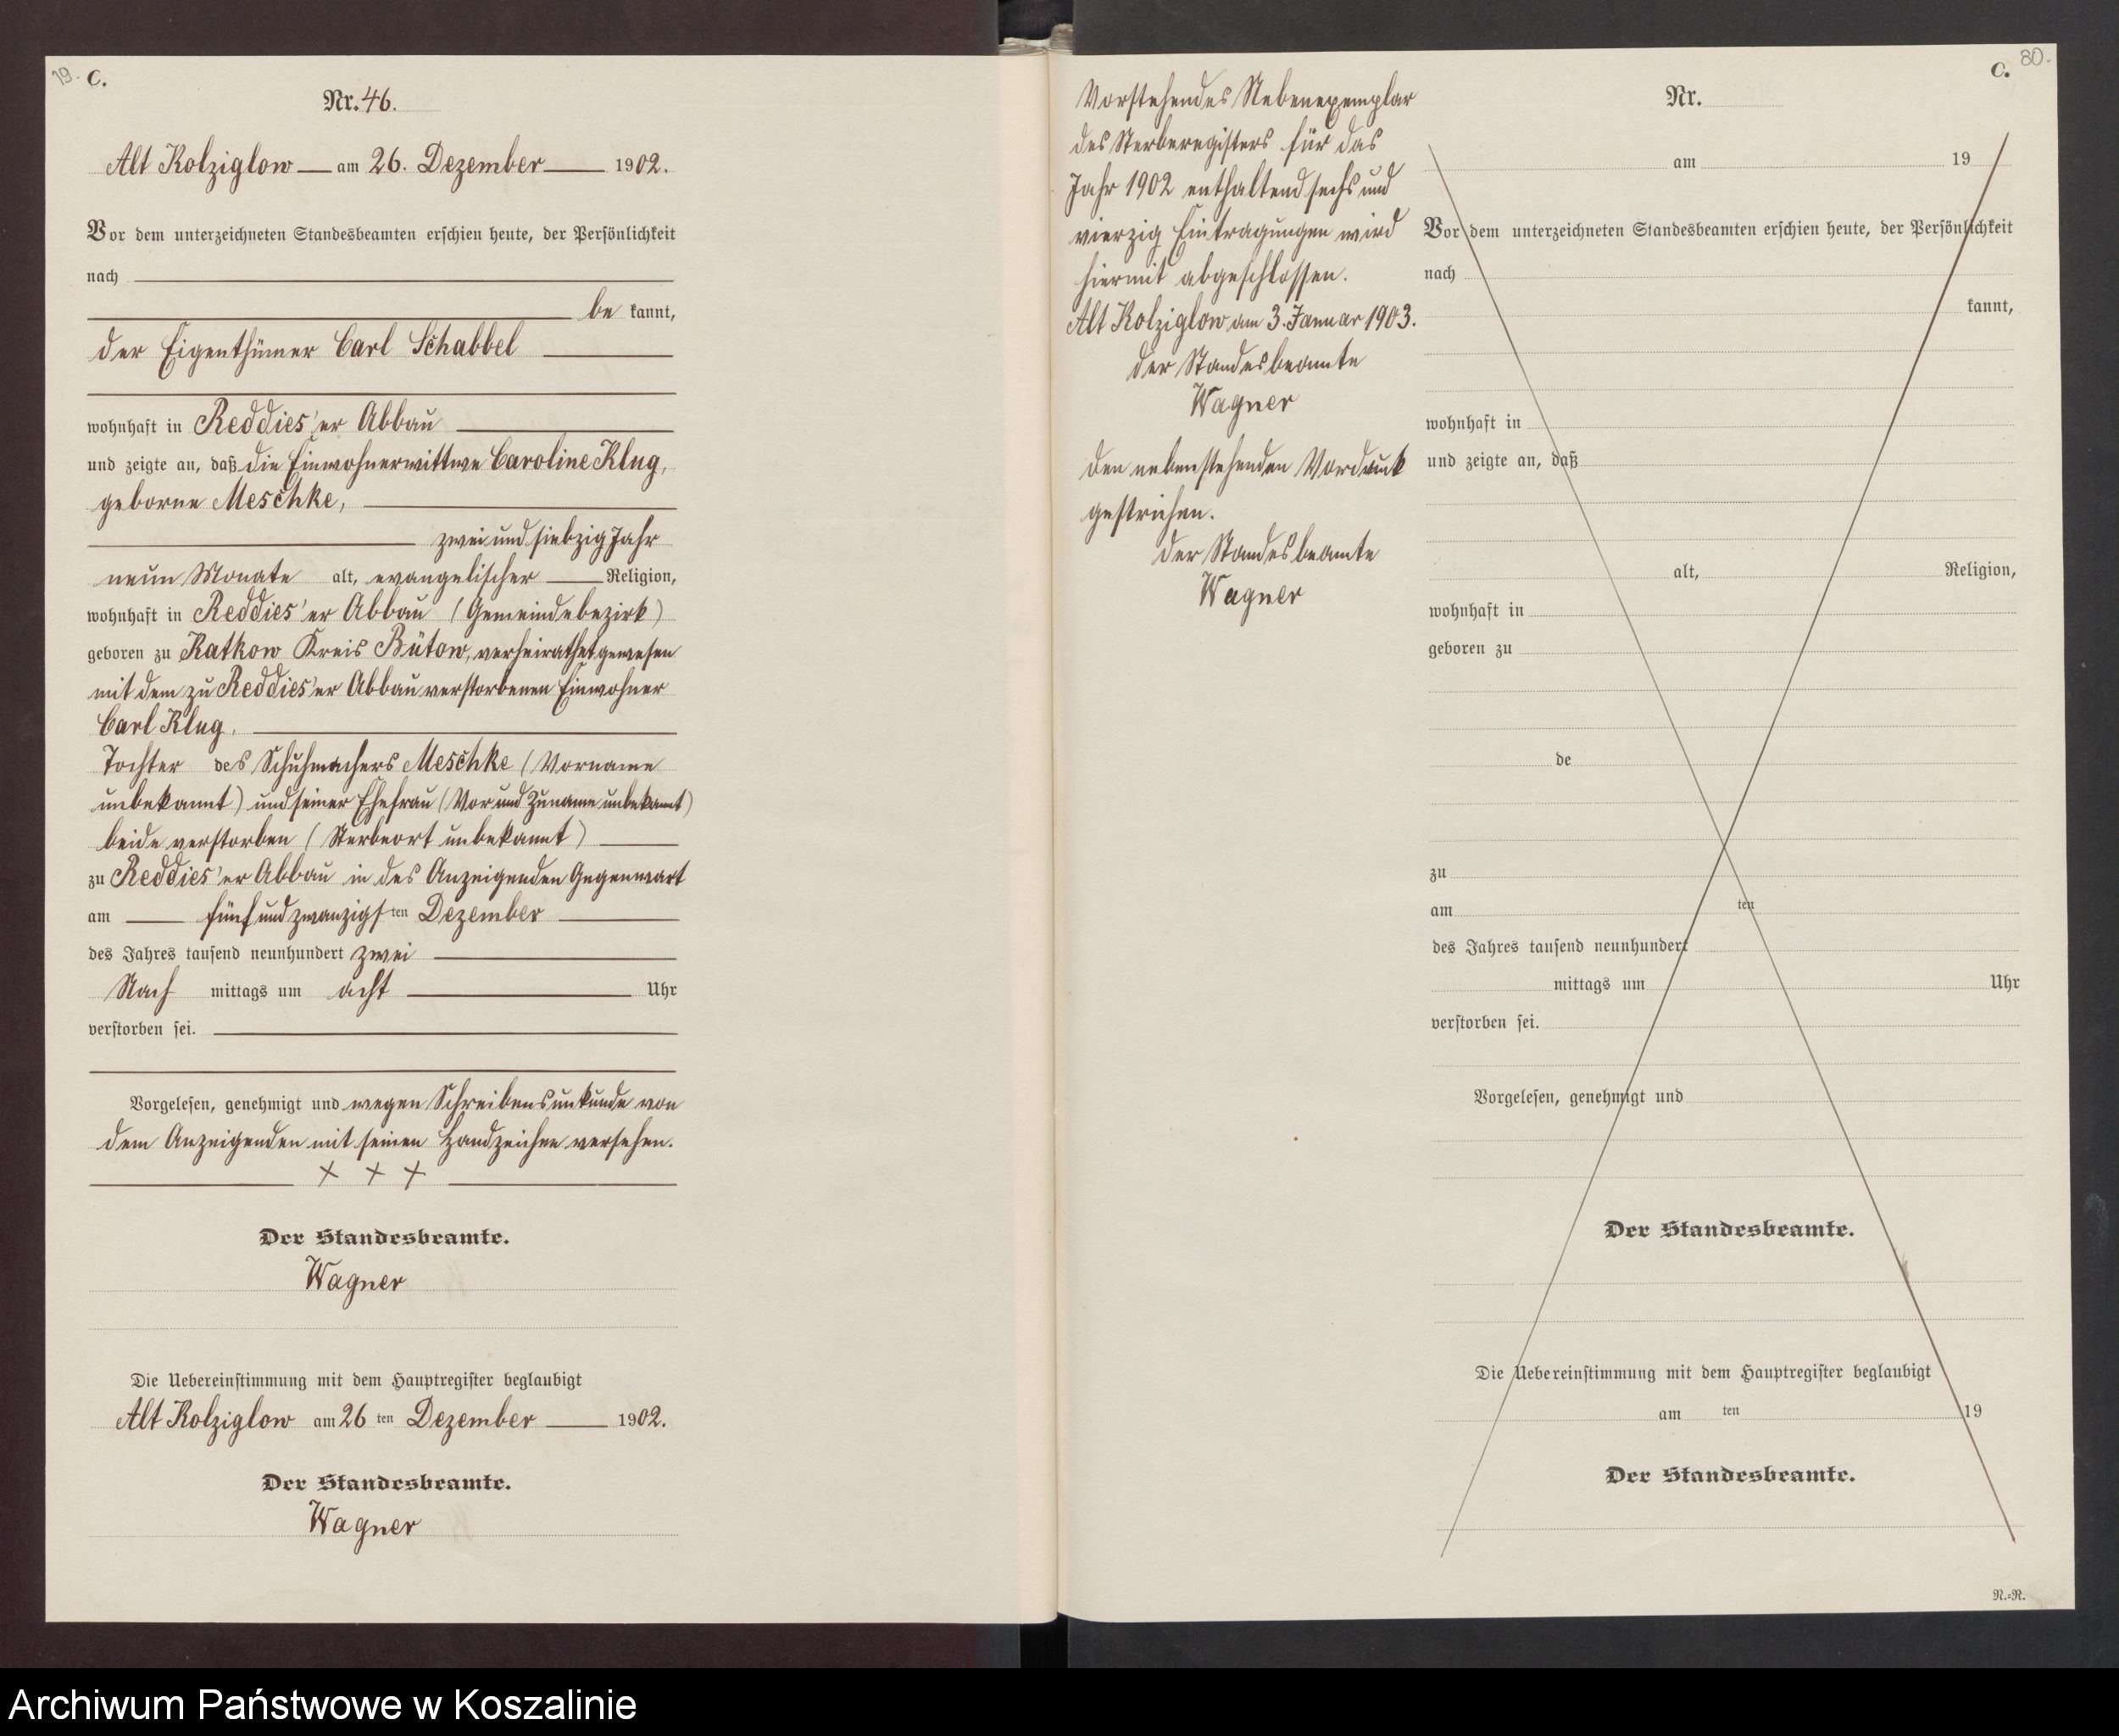 79. C.
Nr. 46.
Alt Kolziglow am 26. Dezember 1902.
Vor dem unterzeichneten Standesbeamten erschien heute, der Persönlichkeit
nach
be kannt,
der Eigenthümer Carl Schabbel
wohnhaft in Reddies'er Abbau
und zeigte an, daß die Einwohnerwittwe Caroline Klug,
geborne Meschke,
zwei und siebzig Jahr
neun Monate alt, evangelischer Religion,
wohnhaft in Reddies'er Abbau (Gemeindebezirk)
geboren zu Katkow Kreis Bütow, verheirathet gewesen
mit dem zu Reddies'er Abbau verstorbenen Einwohner
Carl Klug.
Tochter des Schuhmachers Meschke (Vorname
unbekannt) und seiner Ehefrau (Vor und Zuname unbekannt)
beide verstorben (Sterbeort unbekannt)
zu Reddies'er Abbau in des Anzeigenden Gegenwart
am fünf und zwanzigsten Dezember
des Jahres tausend neunhundert zwei
Nach mittags um acht Uhr
verstorben sei.
Vorgelesen, genehmigt und wegen Schreibensunkunde von
dem Anzeigenden mit seinen Handzeichen versehen.
+ + +
Der Standesbeamte.
Wagner
Die Uebereinstimmung mit dem Hauptregister beglaubigt
Alt Kolziglow am 26 ten Dezember 1902.
Der Standesbeamte.
Wagner
Vorstehendes Nebenexemplar
des Sterberegisters für das
Jahr 1902 enthaltend sechs und
vierzig Eintragungen wird
hiermit abgeschlossen.
Alt Kolziglow am 3. Januar 1903.
Der Standesbeamte
Wagner
Den nebenstehenden Vordruck
gestrichen.
Der Standesbeamte
Wagner
C. 80.
Nr.
am 19
Vor dem unterzeichneten Standesbeamten erschien heute, der Persönlichkeit
nach
kannt,
wohnhaft in
und zeigte an, daß
alt, Religion,
wohnhaft in
geboren zu
de
zu
am ten
des Jahres tausend neunhundert
mittags um Uhr
verstorben sei.
Vorgelesen, genehmigt und
Der Standesbeamte.
Die Uebereinstimmung mit dem Hauptregister beglaubigt
am ten 19
Der Standesbeamte.
N.=R.
Archiwum Państwowe w Koszalinie